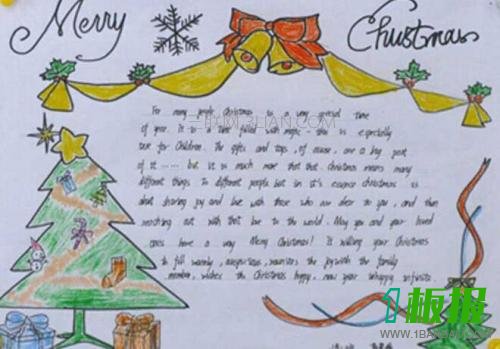 Merry Christmas
For many people Christmas is a very special time
of year. It is a time filled with magic - this is especially
true for Children. The gifts and toys, of course, are a big part
of it ...... but it is much more that that Christmas means many
different things to different people but in it's essence christmas is
about sharing joy and love with those who are dear to you, and then
reaching out with that love to the world. May you and your loved
ones have a very Merry Christmas! is willing your Christmas
to fill warmly, auspicious, reunites the joy with the family
member, wishes the Christmas happy, new year happy infinite.
三联网 3LIAN.COM
1板报
WWW.1BANBAO.COM